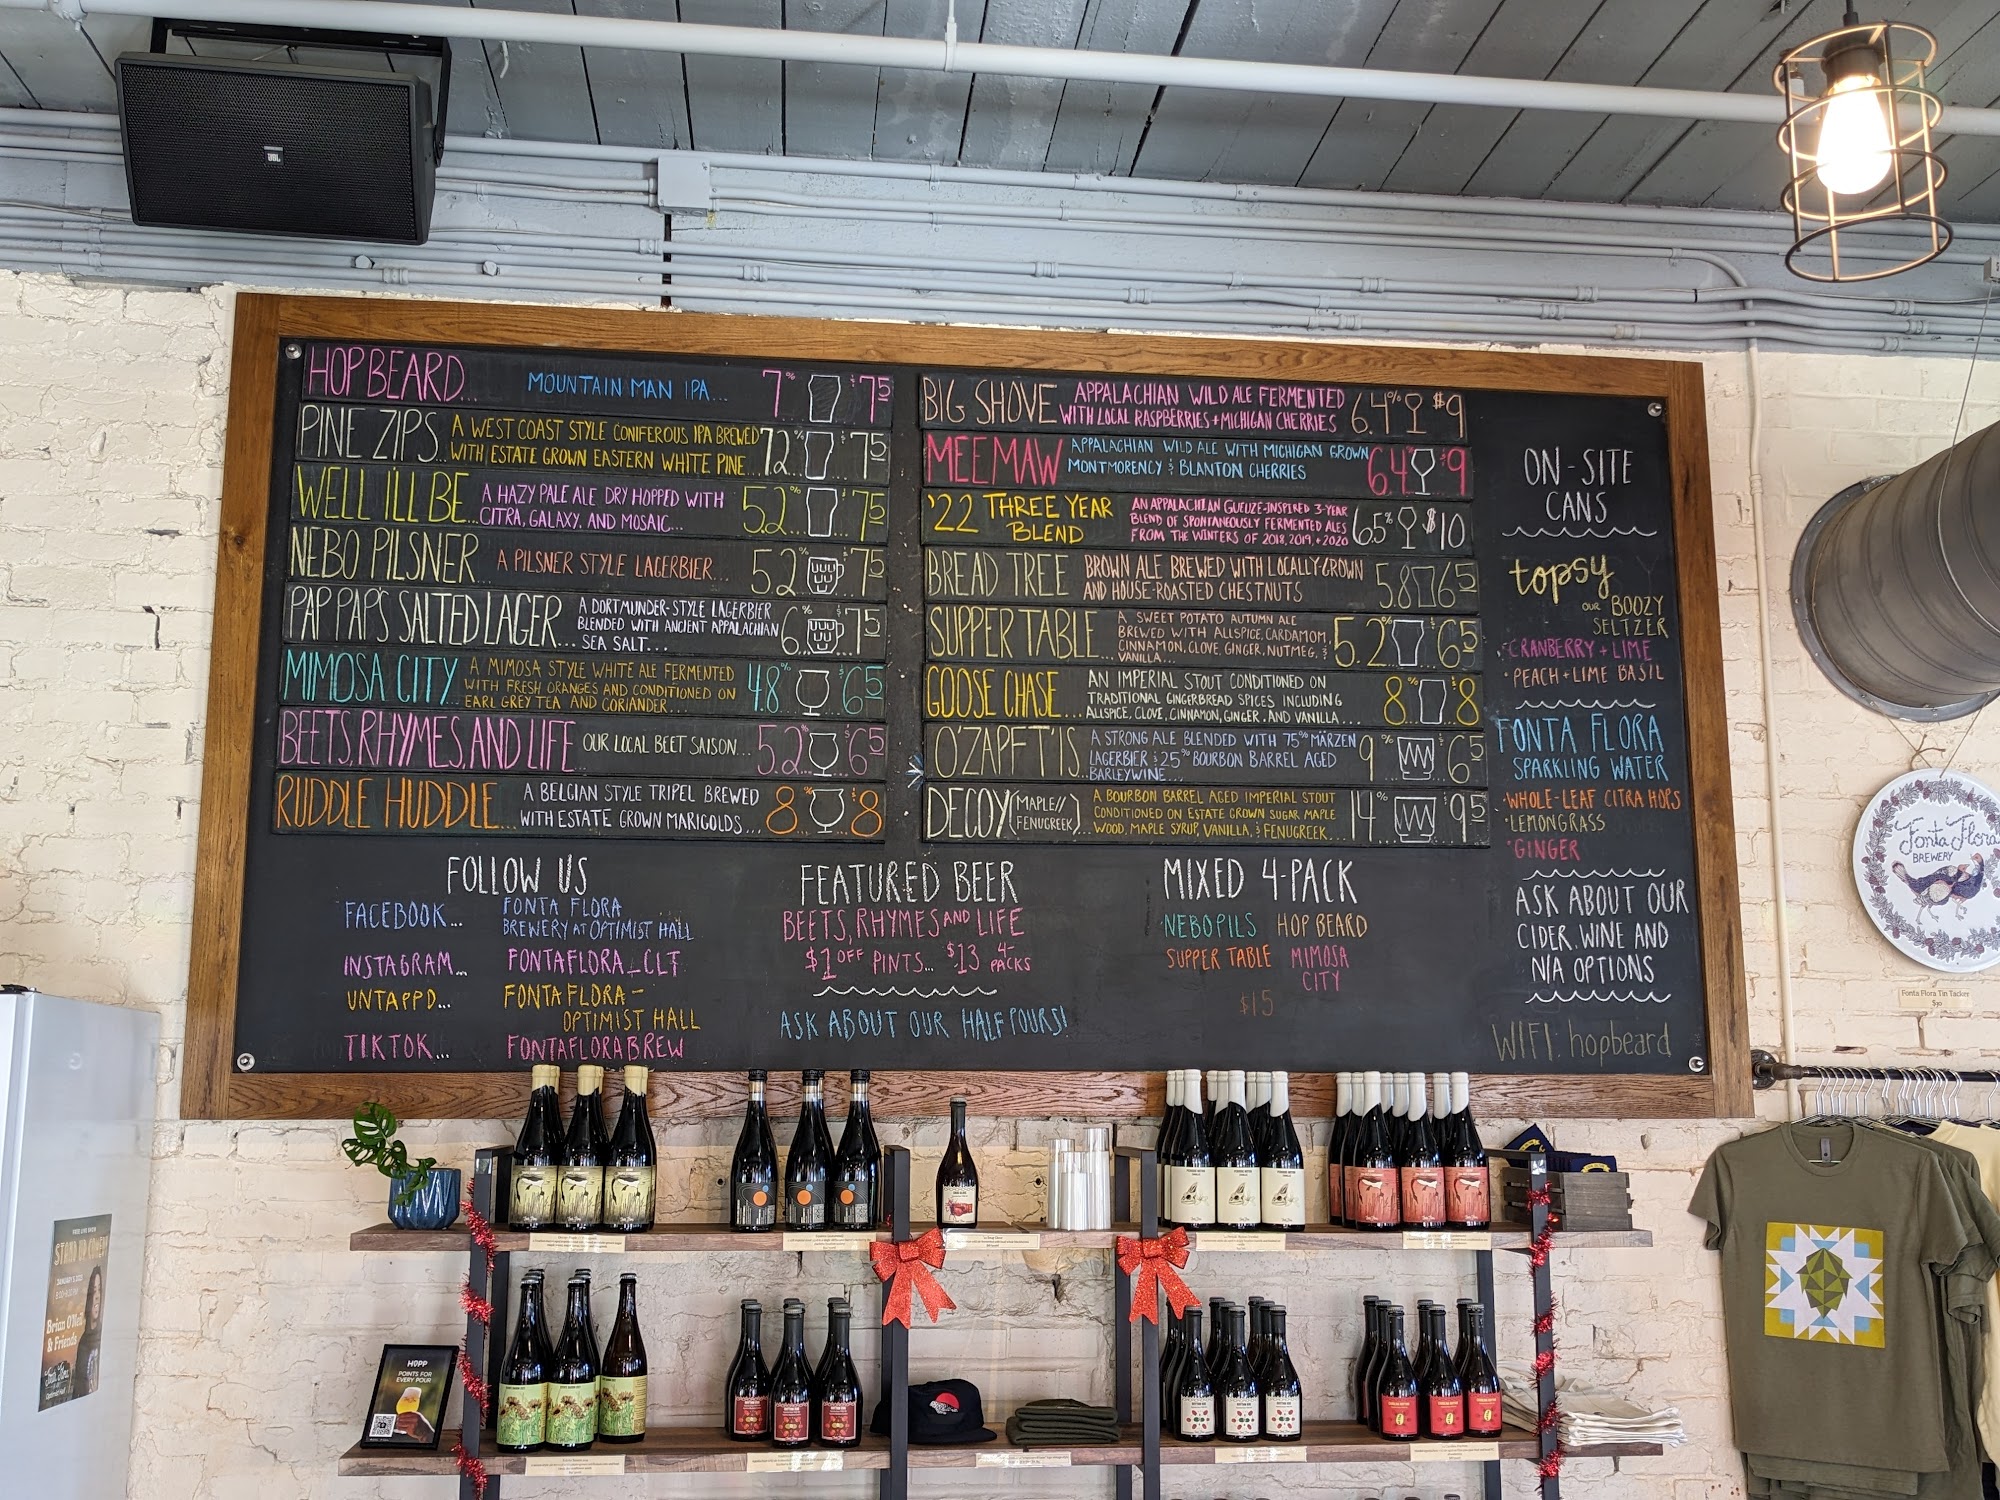 JBL
HOP BEARD... MOUNTAIN MAN IPA... 7% $7.5
PINE ZIPS... A WEST COAST STYLE CONIFEROUS IPA BREWED
WITH ESTATE GROWN EASTERN WHITE PINE... 7.2% $7.5
WELL I'LL BE... A HAZY PALE ALE DRY HOPPED WITH
CITRA, GALAXY, AND MOSAIC... 5.2% $7.5
NEBO PILSNER... A PILSNER STYLE LAGERBIER... 5.2% $7.5
PAP PAP'S SALTED LAGER... A DORTMUNDER-STYLE LAGERBIER
BLENDED WITH ANCIENT APPALACHIAN
SEA SALT... 6% $7.5
MIMOSA CITY... A MIMOSA STYLE WHITE ALE FERMENTED
WITH FRESH ORANGES AND CONDITIONED ON
EARL GREY TEA AND CORIANDER... 4.8% $6.5
BEETS, RHYMES, AND LIFE OUR LOCAL BEET SAISON... 5.2% $6.5
RUDDLE HUDDLE... A BELGIAN STYLE TRIPEL BREWED
WITH ESTATE GROWN MARIGOLDS... 8% $8
BIG SHOVE APPALACHIAN WILD ALE FERMENTED
WITH LOCAL RASPBERRIES + MICHIGAN CHERRIES 6.4% $9
MEEMAW APPALACHIAN WILD ALE WITH MICHIGAN GROWN
MONTMORENCY & BLANTON CHERRIES 6.4% $9
'22 THREE YEAR
BLEND AN APPALACHIAN GUEUZE-INSPIRED 3-YEAR
BLEND OF SPONTANEOUSLY FERMENTED ALES
FROM THE WINTERS OF 2018, 2019, + 2020 6.5% $10
BREAD TREE BROWN ALE BREWED WITH LOCALLY-GROWN
AND HOUSE-ROASTED CHESTNUTS 5.8% $6.5
SUPPER TABLE... A SWEET POTATO AUTUMN ALE
BREWED WITH ALLSPICE, CARDAMOM,
CINNAMON, CLOVE, GINGER, NUTMEG, &
VANILLA... 5.2% $6.5
GOOSE CHASE... AN IMPERIAL STOUT CONDITIONED ON
TRADITIONAL GINGERBREAD SPICES INCLUDING
ALLSPICE, CLOVE, CINNAMON, GINGER, AND VANILLA... 8% $8
O'ZAPFT'IS... A STRONG ALE BLENDED WITH 75% MÄRZEN
LAGERBIER & 25% BOURBON BARREL AGED
BARLEYWINE... 9% $6.5
DECOY (MAPLE//
FENUGREEK)... A BOURBON BARREL AGED IMPERIAL STOUT
CONDITIONED ON ESTATE GROWN SUGAR MAPLE
WOOD, MAPLE SYRUP, VANILLA, & FENUGREEK... 14% $9.5
ON-SITE
CANS
topsy
OUR BOOZY
SELTZER
• CRANBERRY + LIME
• PEACH + LIME BASIL
FONTA FLORA
SPARKLING WATER
• WHOLE-LEAF CITRA HOPS
• LEMONGRASS
• GINGER
ASK ABOUT OUR
CIDER, WINE AND
N/A OPTIONS
WIFI: hopbeard
FOLLOW US
FACEBOOK... FONTA FLORA
BREWERY AT OPTIMIST HALL
INSTAGRAM... FONTAFLORA_CLT
UNTAPPD... FONTA FLORA -
OPTIMIST HALL
TIKTOK... FONTAFLORABREW
FEATURED BEER
BEETS, RHYMES AND LIFE
$1 OFF PINTS... $13 4-
PACKS
ASK ABOUT OUR HALF POURS!
MIXED 4-PACK
• NEBO PILS HOP BEARD
SUPPER TABLE MIMOSA
CITY
$15
Fonta Flora
BREWERY
Fonta Flora Tin Tacker
$30
STAND UP COMEDY
Brian O'Neil
& Friends
HOPP
POINTS FOR
EVERY POUR